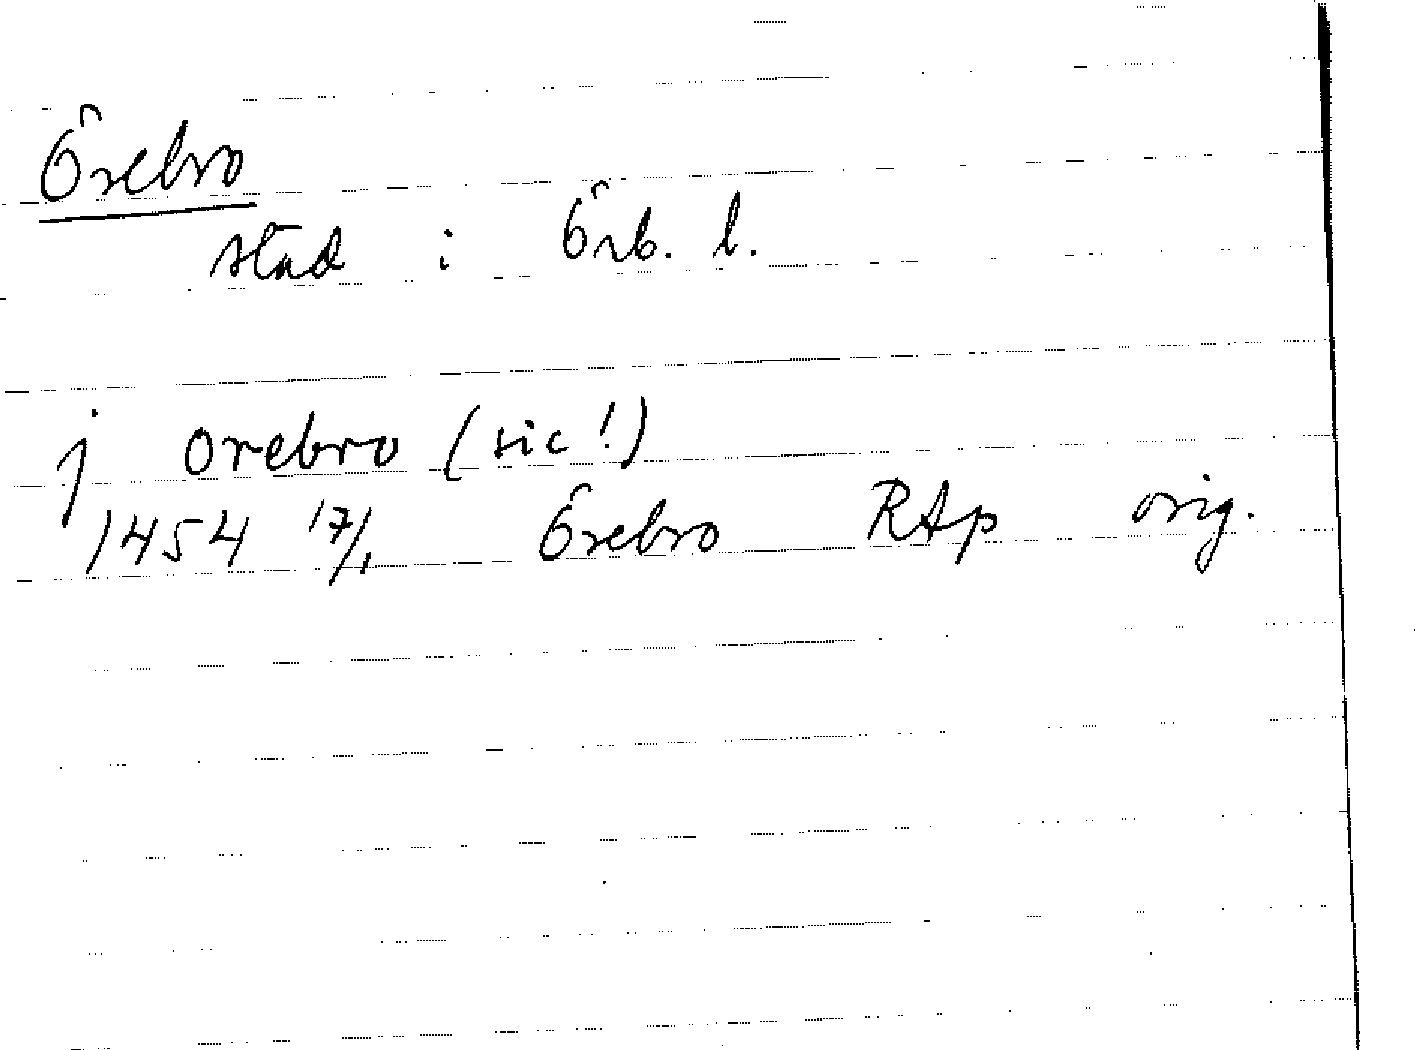 Örebro
stad i Örb. l.
j orebro (sic!)
1454 17/1 Örebro RAp orig.